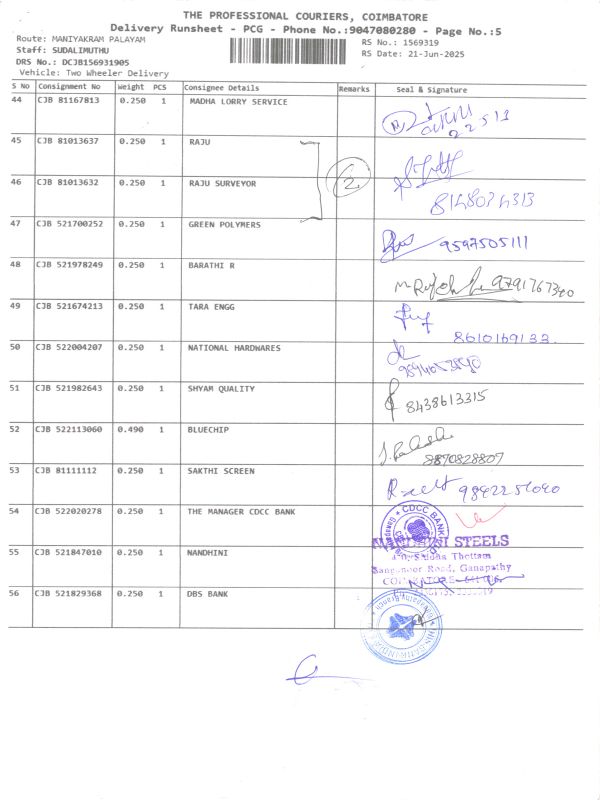 THE PROFESSIONAL COURIERS, COIMBATORE
Delivery Runsheet - PCG - Phone No.:9047080280 - Page No.:5
Route: MANIYAKRAM PALAYAM
Staff: SUDALIMUTHU
DRS No.: DCJB156931905
Vehicle: Two Wheeler Delivery
RS No.: 1569319
RS Date: 21-Jun-2025
S No Consignment No Weight PCS Consignee Details Remarks Seal & Signature
44 CJB 81167813 0.250 1 MADHA LORRY SERVICE
22513
45 CJB 81013637 0.250 1 RAJU
2
46 CJB 81013632 0.250 1 RAJU SURVEYOR
8148074313
47 CJB 521700252 0.250 1 GREEN POLYMERS
9597505111
48 CJB 521978249 0.250 1 BARATHI R
9791767340
49 CJB 521674213 0.250 1 TARA ENGG
8610169132
50 CJB 522004207 0.250 1 NATIONAL HARDWARES
51 CJB 521982643 0.250 1 SHYAM QUALITY
8438613315
52 CJB 522113060 0.490 1 BLUECHIP
8870828807
53 CJB 81111112 0.250 1 SAKTHI SCREEN
54 CJB 522020278 0.250 1 THE MANAGER CDCC BANK
CDCC BANK
STEELS
Thottam
Road, Ganapathy
55 CJB 521847010 0.250 1 NANDHINI
56 CJB 521829368 0.250 1 DBS BANK